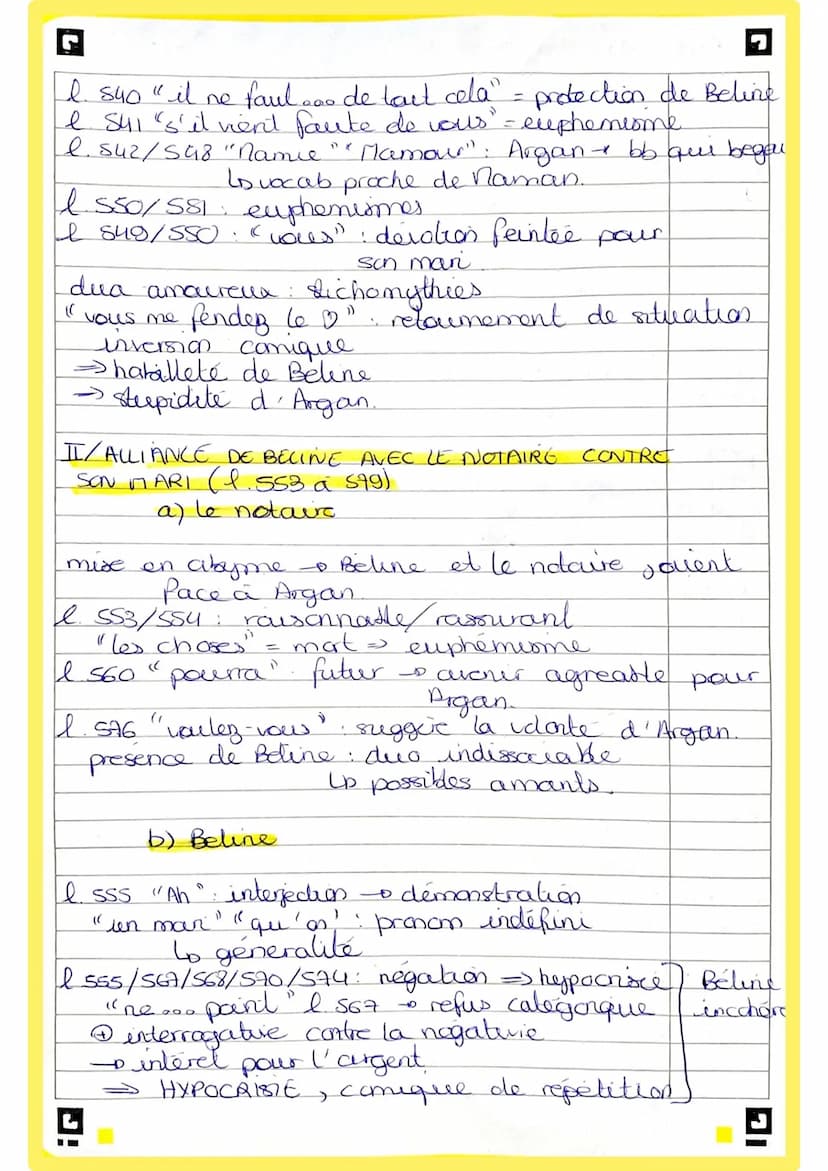 l. 540 "il ne faut... de tout cela" = protection de Beline
l 541 "s'il vient faute de vous" = euphemisme
l. 542/548 "Mamie" "Mamour" : Argan → bb qui begau
↳ vocab proche de Maman.
l. 550/551 : euphemismes
l 549/550 : "vous" : dévotion feintée pour
son mari
duo amoureux : stichomythies
"vous me fendez le ♡" : retournement de situation
inversion comique
⇒ habilleté de Béline
→ stupidité d'Argan.
II/ ALLIANCE DE BELINE AVEC LE NOTAIRE CONTRE
SON MARI (l. 553 à 579)
a) le notaire
mise en abyme → Béline et le notaire jouent
face à Argan.
l. 553/554 : raisonnable/rassurant
"les choses" = mort ⇒ euphémisme
l 560 "pourra" : futur → avenir agreable pour
Argan.
l. 576 "voulez-vous" : suggère la volonté d'Argan.
présence de Béline : duo indissociable
↳ possibles amants.
b) Beline
l. 555 "Ah" : interjection → démonstration
"un mari" "qu'on" : pronom indéfini
↳ généralité
l 555/567/568/570/574 : négation ⇒ hypocrisie Béline
"ne... point" l. 567 → refus catégorique incohére
⊕ interrogative contre la négative
→ intéret pour l'argent
⇒ HYPOCRISIE, comique de répétition